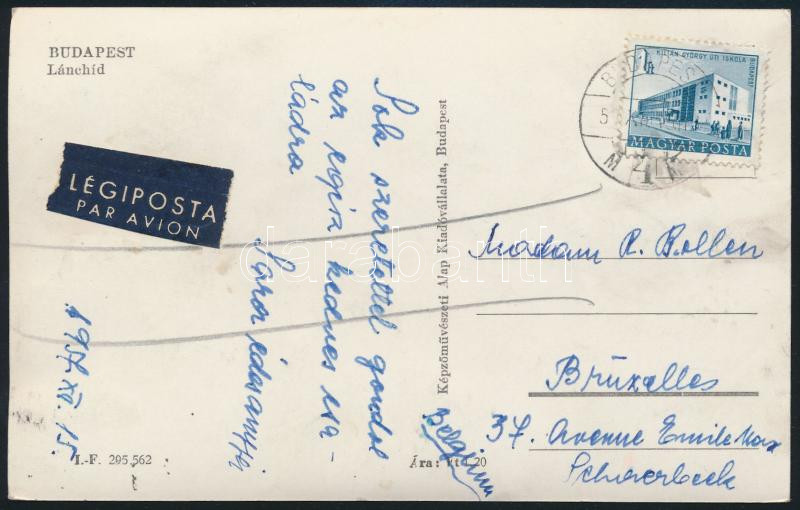 BUDAPEST
Lánchíd
LÉGIPOSTA
PAR AVION
Sok szeretettel gondol
az egész kedves csa-
ládra
Sági édesanyja
Képzőművészeti Alap Kiadóvállalata, Budapest
KILIÁN GYÖRGY ÚTI ISKOLA
BUDAPEST
1 Ft
MAGYAR POSTA
BUDAPEST
4
Madam R. Bollen
Brüxelles
37. Avenue Emile Max
Schaerbeek
Belgium
I.-F. 295,562
Ára: Ft 1.20
darabanth